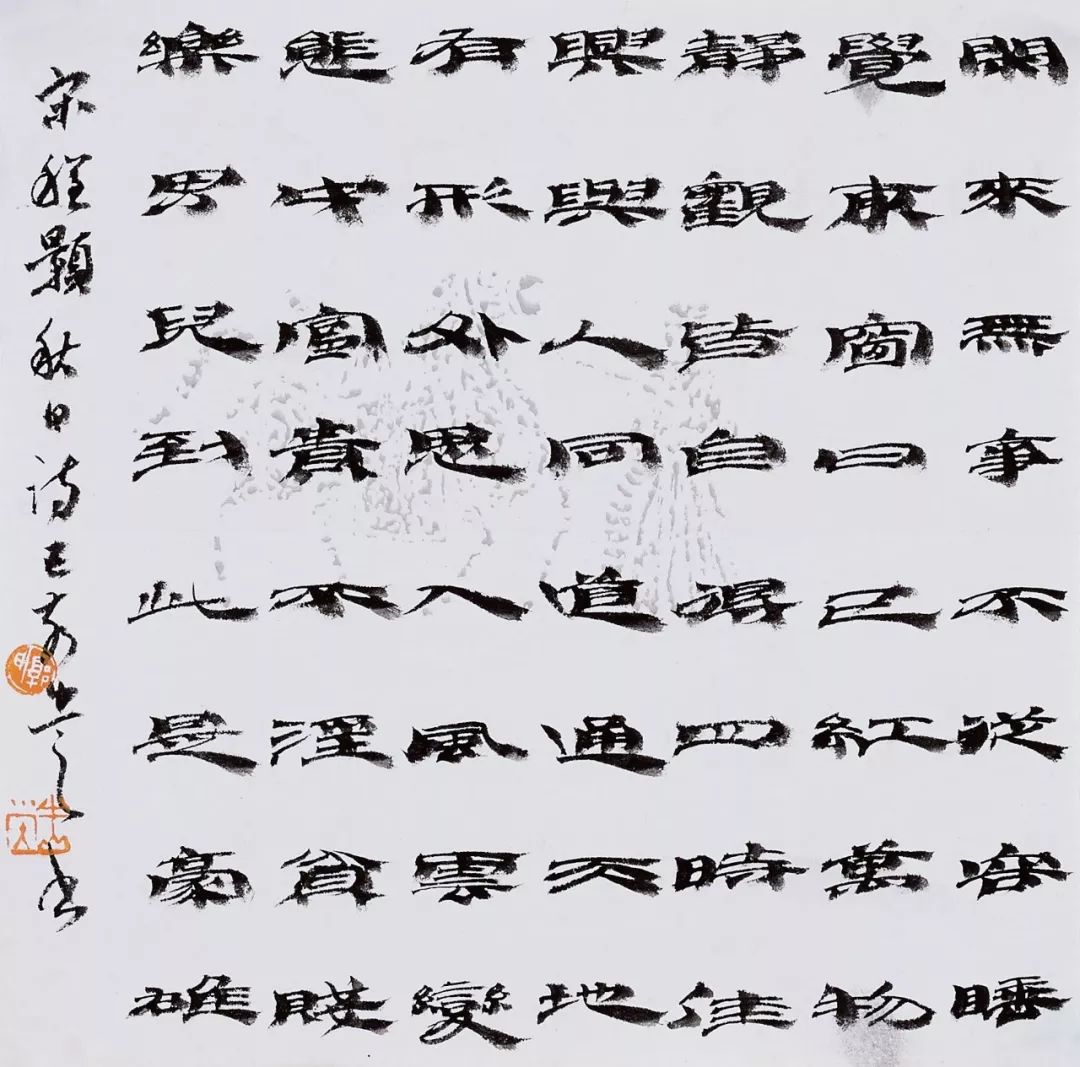 閑來無事不從容睡
覺東窗日已紅萬物
靜觀皆自得四時佳
興與人同道通天地
有形外思入風雲變
態中富貴不淫貧賤
樂男兒到此是豪雄
宋程顥秋日詩己亥書